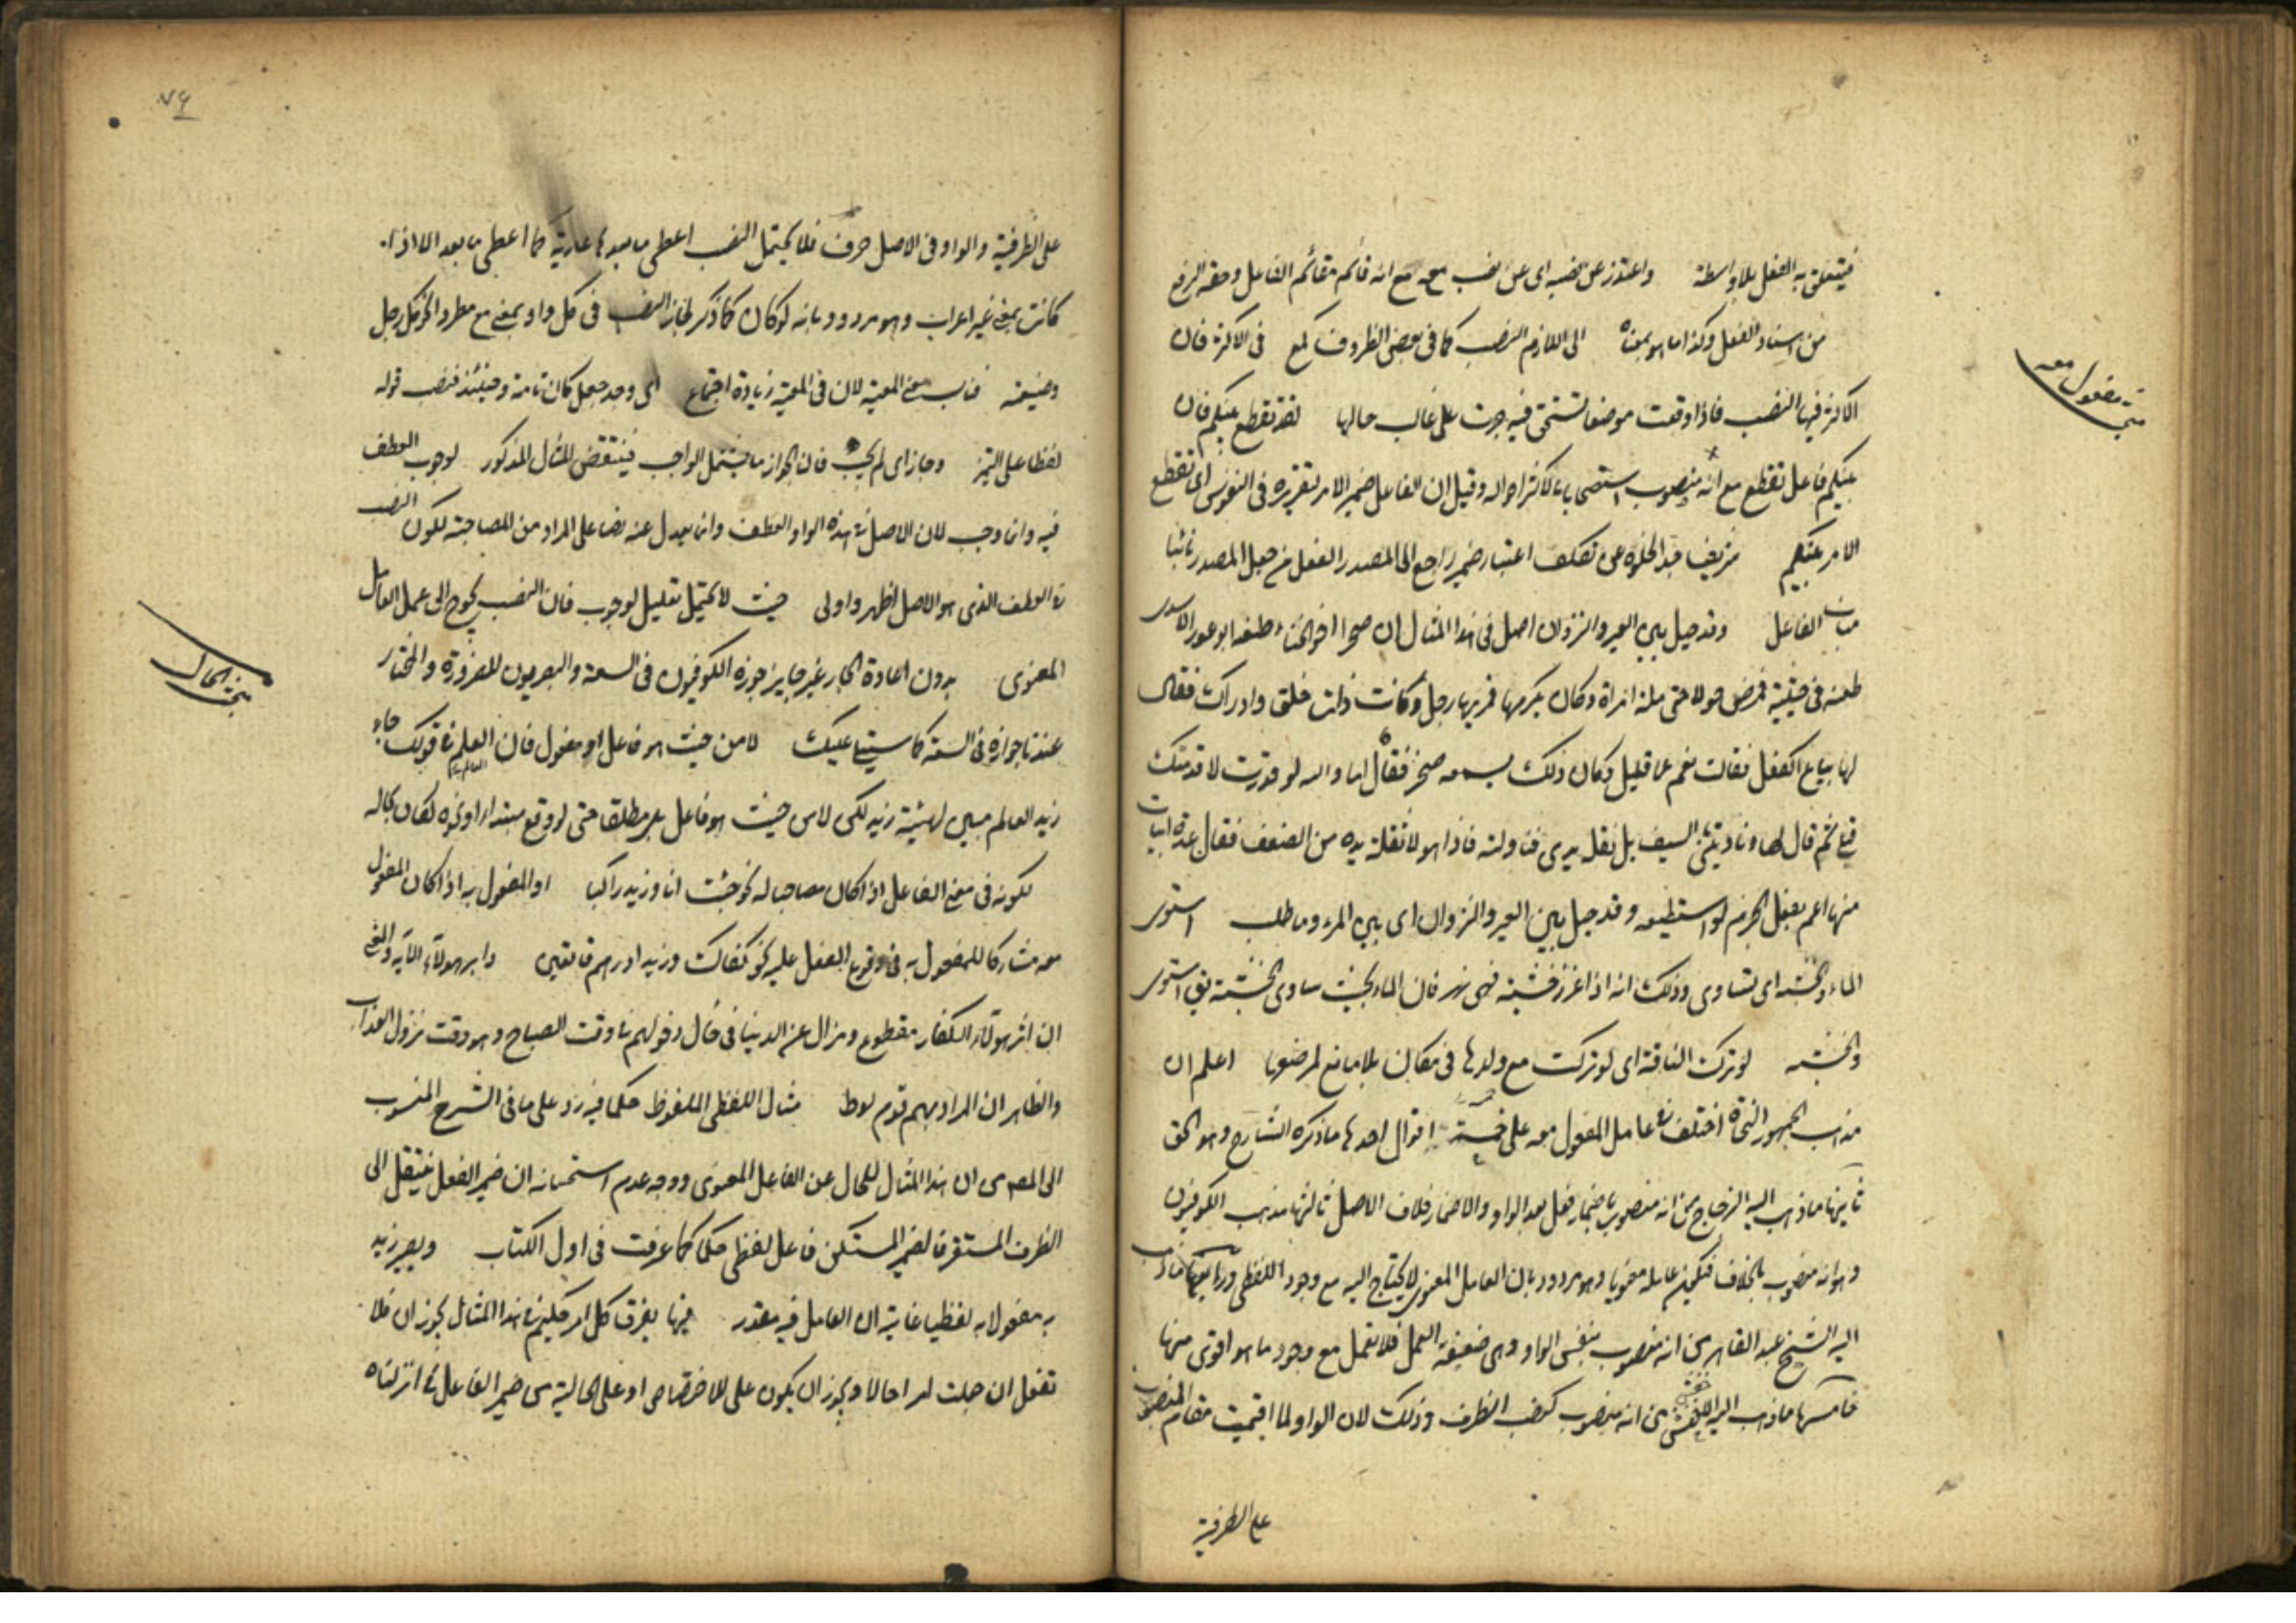 فيتعلق به الفعل بلا واسطة واعتذر عن نصبه اى عن نصب معه مع انه قائم مقام الفاعل وحقه الرفع
من اسناد الفعل وكذا ما هو بمعناه الى اللازم النصب كما فى بعض الظروف كمع فى الاكثر فان
الاكثر فيها النصب فاذا وقعت موضعا تستحق فيه جرت على غالب حالها لقد تقطع بينكم فان
بينكم فاعل تقطع مع انه منصوب استصحابا لاكثر احواله وقيل ان الفاعل ضمير الامر لتقرره فى النفوس اى تقطع
الامر بينكم شريف جدا لخلوه عن تكلف اعتبار ضمير راجع الى المصدر الفعل من جعل المصدر نائبا
مناب الفاعل وقد حيل بين العير والنزوان اصل فى هذا المثال ان صخرا اخو الخنساء طعنه ابو ثور الاسدى
طعنه فى جنبه فمرض حولا حتى ملته امرأة وكان يكرمها فمر بها رجل وكانت ذات خلق وادراك فقال
لها يباع الكفل فقالت نعم عما قليل وكان ذلك يسمعه صخر فقال اما والله لو قدرت لاقدمنك
قبلى ثم قال لها ناولينى السيف بل تقله يدى فناولته فاذا هو لا تقله يده من الضعف فقال عدة ابيات
منها اهم بفعل الحزم لو استطيعه وقد حيل بين العير والنزوان اى بين المرء وما طلب استوى
الماء والخشبة اى تساوى وذلك انه اذا غرز خشبة فى نهر فان الماء بحيث ساوى الخشبة يق استوى
والخشبة لو تركت الناقة اى لو تركت مع ولدها فى مكان بلا مانع لرضعها اعلم ان
مذهب الجمهور النحاة اختلف فى عامل المفعول معه على خمسة اقوال احدها ما ذكره الشارح وهو الحق
ثانيها ما ذهب اليه الزجاج من انه منصوب باضمار فعل بعد الواو والاضمار خلاف الاصل ثالثها مذهب الكوفيون
وهو انه منصوب بالخلاف فيكون عامله معنويا وهو مردود بان العامل المعنوى لا يحتاج اليه مع وجود اللفظى ورابعها ما ذهب
اليه الشيخ عبد القاهر من انه منصوب بنفس الواو وهى ضعيفة العمل فلا تعمل مع وجود ما هو اقوى منها
خامسها ما ذهب اليه الاخفش من انه منصوب كنصب الظرف وذلك لان الواو لما اقيمت مقام المنصوب
على الظرفية
مبحث مفعول معه
٧٦
على الظرفية والواو فى الاصل حرف فلا يحتمل النصب اعطى ما بعدها عارية كما اعطى ما بعد الا اذا
كانت بمعنى غير اعراب وهو مردود بانه لو كان كما ذكر لجاز النصب فى كل واو بمعنى مع مطردا نحو كل رجل
وضيعته فناسب معنى المعية لان فى المعية زيادة اجتماع اى وجد جعل كان تامة وحينئذ فنصب قوله
لفظا على التميز وجاز اى لم يجب فان الجواز ما يشمل الواجب فينتقض المثال المذكور لوجوب العطف
فيه وان وجب لان الاصل فى هذه الواو العطف وان يعدل عنه نصا على المراد من المصاحبة لكون النصب
فى العطف الذى هو الاصل اظهر واولى حيث لا يحتمل تعليل لوجوب فان النصب يحوج الى عمل العامل
المعنوى بدون اعادة الجار غير جايز جوزه الكوفيون فى السعة والبصريون للضرورة والمختار
عندنا جوازه فى السعة كما سيتلى عليك لا من حيث هو فاعل او مفعول فان العلم فى قولك جاء
زيد العالم مبين لهيئة زيد لكن لا من حيث هو فاعل بل مطلقا حتى لو وقع مبتداء او نحوه لكان بحاله
لكونه فى معنى الفاعل اذا كان مصاحبا له نحو جئت انا وزيد راكبا او المفعول به اذا كان المفعول
معه مشاركا للمفعول به فى وقوع الفعل عليه نحو كفاك وزيدا درهم قائمين دابر هولاء الاية والمعنى
ان اثر هولاء الكفار مقطوع ومزال عن الدنيا فى حال دخولهم فى وقت الصباح وهو وقت نزول العذاب
والظاهر ان المراد بهم قوم لوط مثال اللفظى الملفوظ حكما فيه رد على ما فى الشرح المنسوب
الى المصر من ان هذا المثال للحال عن الفاعل المعنوى ووجه عدم استحسانه ان ضمير الفعل ينتقل الى
الظرف المستقر فالضمير المستكن فاعل لفظى حكما كما عرفت فى اول الكتاب وبصير زيد
به مفعولا به لفظيا غاية ان العامل فيه مقدر فيها يفرق كل امر حكيم فى هذا المثال يجوز ان فلا
تفعل ان جعلت امرا حالا ويجوز ان يكون على الاختصاص او على الحالية من ضمير الفاعل فى انزلناه
مبحث الحال